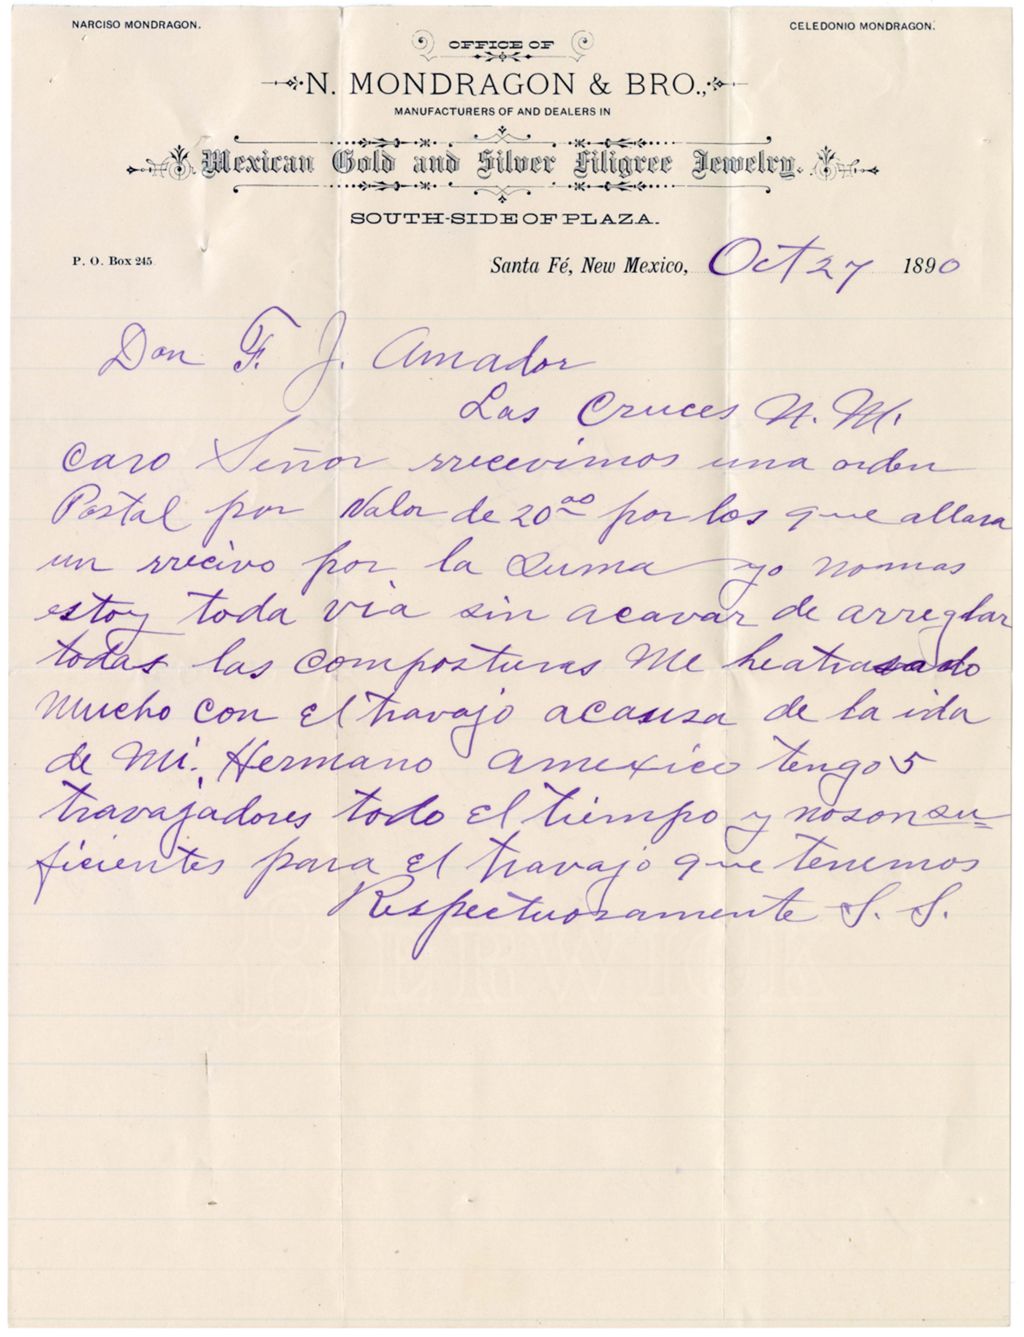 NARCISO MONDRAGON.
CELEDONIO MONDRAGON.
OFFICE OF
N. MONDRAGON & BRO.,
MANUFACTURERS OF AND DEALERS IN
Mexican Gold and Silver Filigree Jewelry.
SOUTH-SIDE OF PLAZA.
P. O. Box 245.
Santa Fé, New Mexico, Oct 27 1890
Don F. J. Amador
Las Cruces N. M.
Caro Señor rrecevimos una orden
Postal por Valor de 20 00 por los que allara
un rrecivo por la Suma yo nomas
estoy toda via sin acavar de arreglar
todas las composturas Me heatrasado
Mucho con el travajo acausa de la ida
de Mi Hermano amexico tengo 5
travajadores todo el tiempo y noson su=
ficientes para el travajo que tenemos
Respectuosamente S. S.